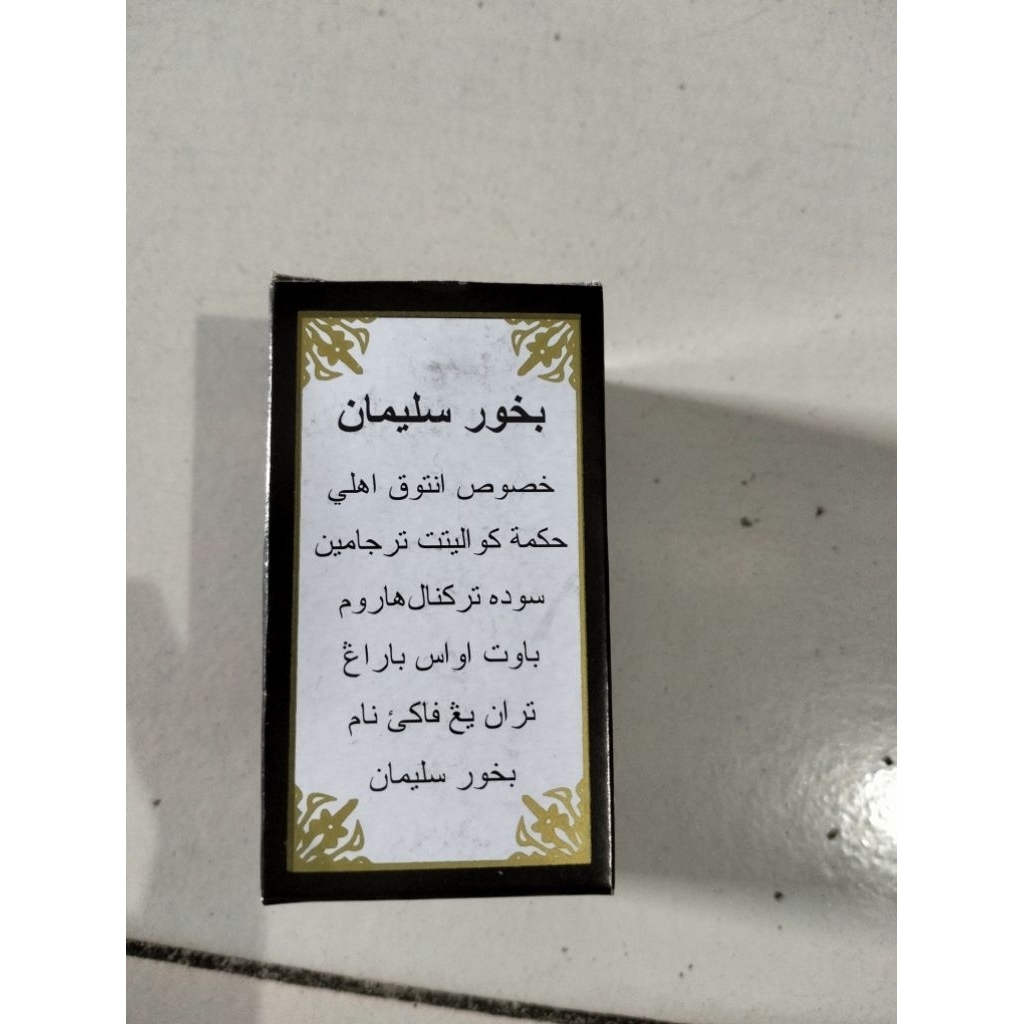 بخور سليمان
خصوص انتوق اهلي
حكمة كواليتت ترجامين
سوده تركنال‌هاروم
باوت اواس باراڠ
تران يڠ فاكئ نام
بخور سليمان